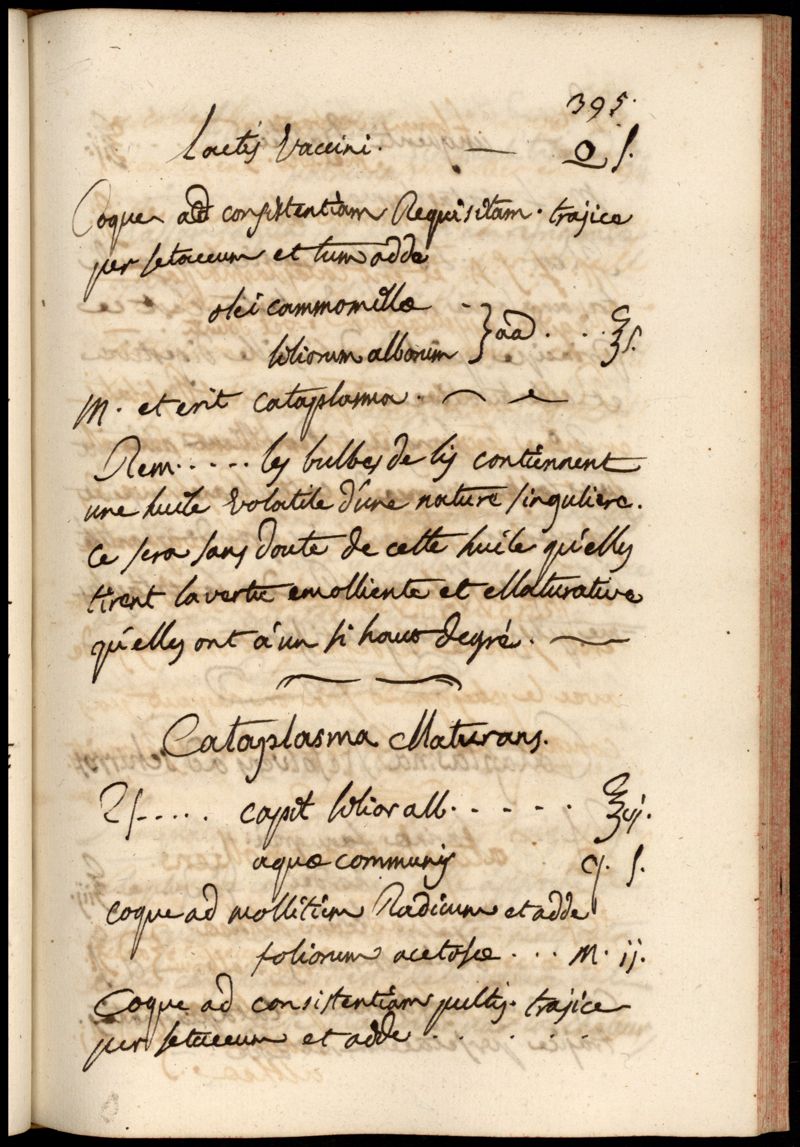 395.
Lactis Vaccini. — O ſ.
Coque ad consistentiam Requisitam. trajice
per setaceum et tum adde
olei cammomillæ -
liliorum alborum } aad . . . ℥ſ.
M. et erit cataplasma.
Rem..... les bulbes de lis contiennent
une huile volatile d'une nature singuliere.
ce sera sans doute de cette huile qu'elles
tirent la vertu emolliente et Maturative
qu'elles ont a un si haut degré.
Cataplasma Maturans.
℞..... capit lilior alb. - - - - - ℥ij.
aquæ communis q. ſ.
coque ad mollitiem Radicum et adde
foliorum acetosæ . . . M. ij.
Coque ad consistentiam pultis. trajice
per setaceum et adde . . . . .